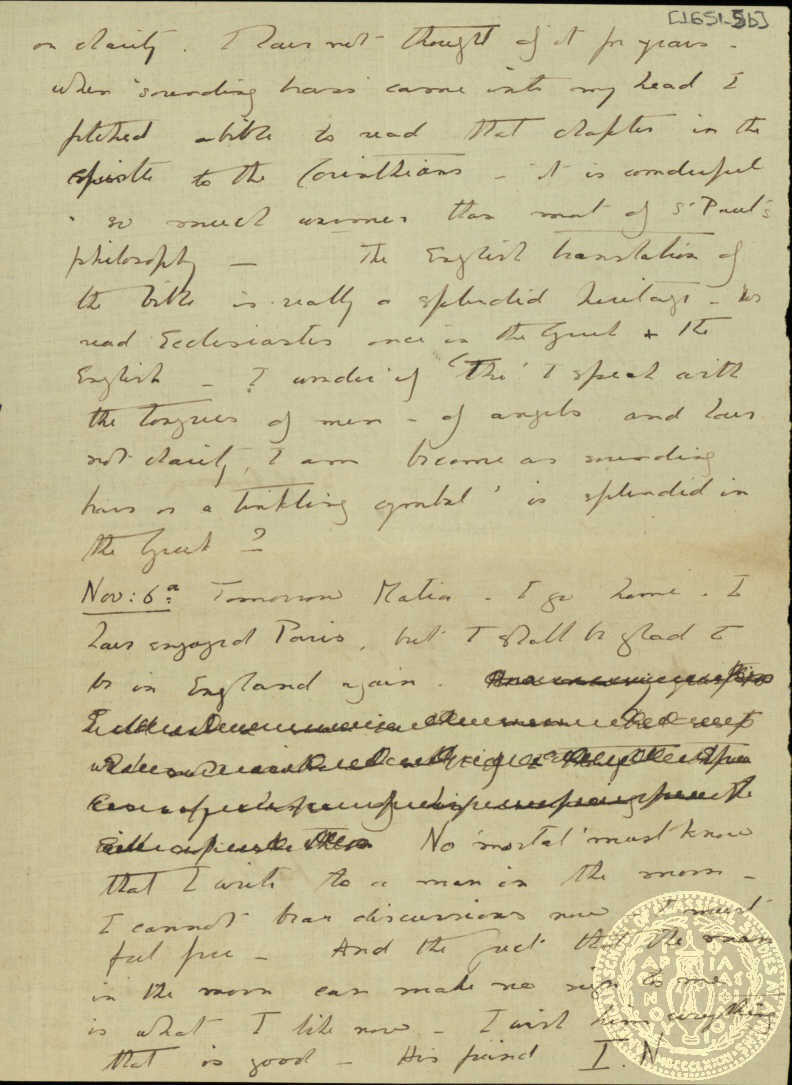 [1651-5b]
on charity. I have not thought of it for years -
when 'sounding brass' came into my head I
fetched a bible to read that chapter in the
epistle to the Corinthians - it is wonderful
so much warmer than most of St Paul's
philosophy - The English translation of
the bible is really a splendid heritage - We
read Ecclesiastes once in the Greek + the
English - I wonder if 'Tho' I speak with
the tongues of men - of angels and have
not charity, I am become as sounding
brass or a tinkling cymbal' is splendid in
the Greek?
Nov: 6th Tomorrow - I go home. I
have enjoyed Paris, but I shall be glad to
be in England again.
No 'mortal' must know
that I write to a man in the moon -
I cannot bear discussions now - I must
feel free - And the fact that the man
in the moon can make no sign to me
is what I like now - I wish him everything
that is good - His friend I. N